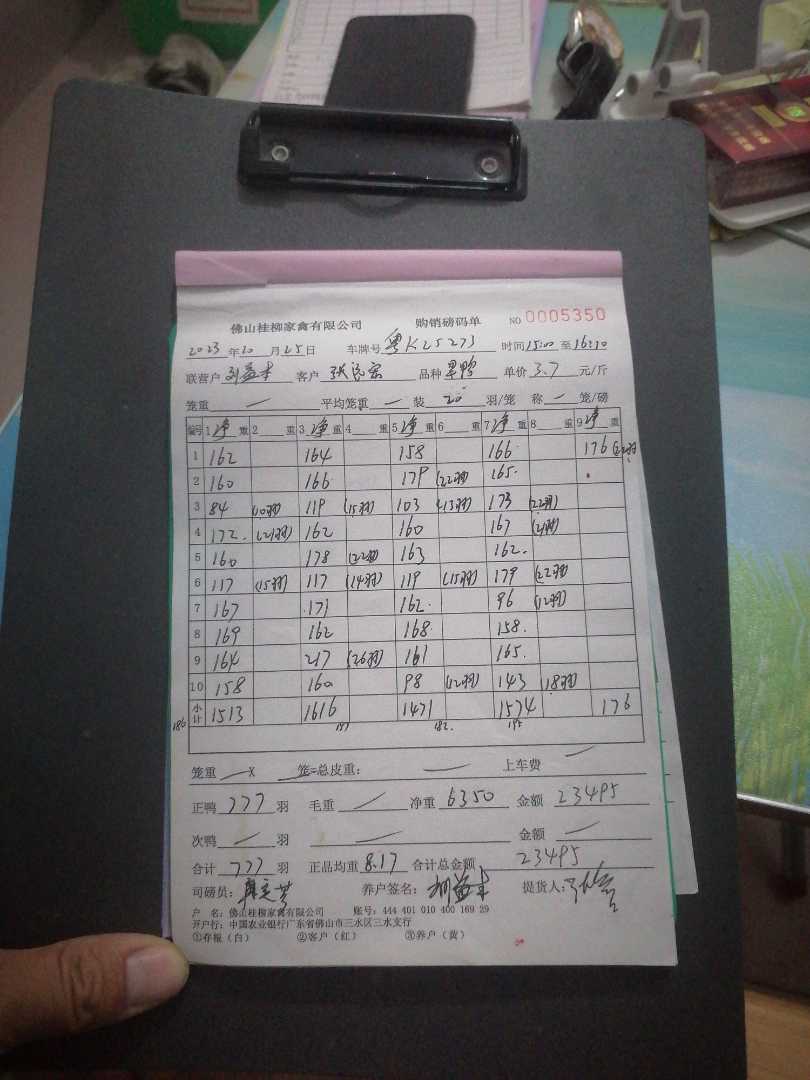 佛山桂柳家禽有限公司 购销磅码单 NO 0005350
2023 年 10 月 25 日 车牌号 粤K25273 时间 15:00 至 16:10
联营户 客户 品种 单价 3.7 元/斤
笼重 — 平均笼重 — 装 20 羽/笼 称 — 笼/磅
编号 1 净 重 2 重 3 净 重 4 重 5 净 重 6 重 7 净 重 8 重 9 净 重
1 162 164 158 166 176 (22羽)
2 160 166 179 (22羽) 165
3 84 (10羽) 119 (15羽) 103 (13羽) 173 (22羽)
4 172 (21羽) 162 160 167 (21羽)
5 160 178 (22羽) 163 162
6 117 (15羽) 117 (14羽) 119 (15羽) 179 (22羽)
7 167 171 162 96 (12羽)
8 169 162 168 158
9 164 217 (26羽) 161 165
10 158 160 98 (12羽) 143 (18羽)
小计 1513 1616 1471 1574 176
186 197 182 195
笼重 — X 笼=总皮重： — 上车费 —
正鸭 777 羽 毛重 — 净重 6350 金额 23495
次鸭 — 羽 — 金额 —
合计 777 羽 正品均重 8.17 合计总金额 23495
司磅员： 养户签名： 提货人：
户 名：佛山桂柳家禽有限公司 账号：444 401 010 400 169 29
开户行：中国农业银行广东省佛山市三水区三水支行
①存根（白） ②客户（红） ③养户（黄）